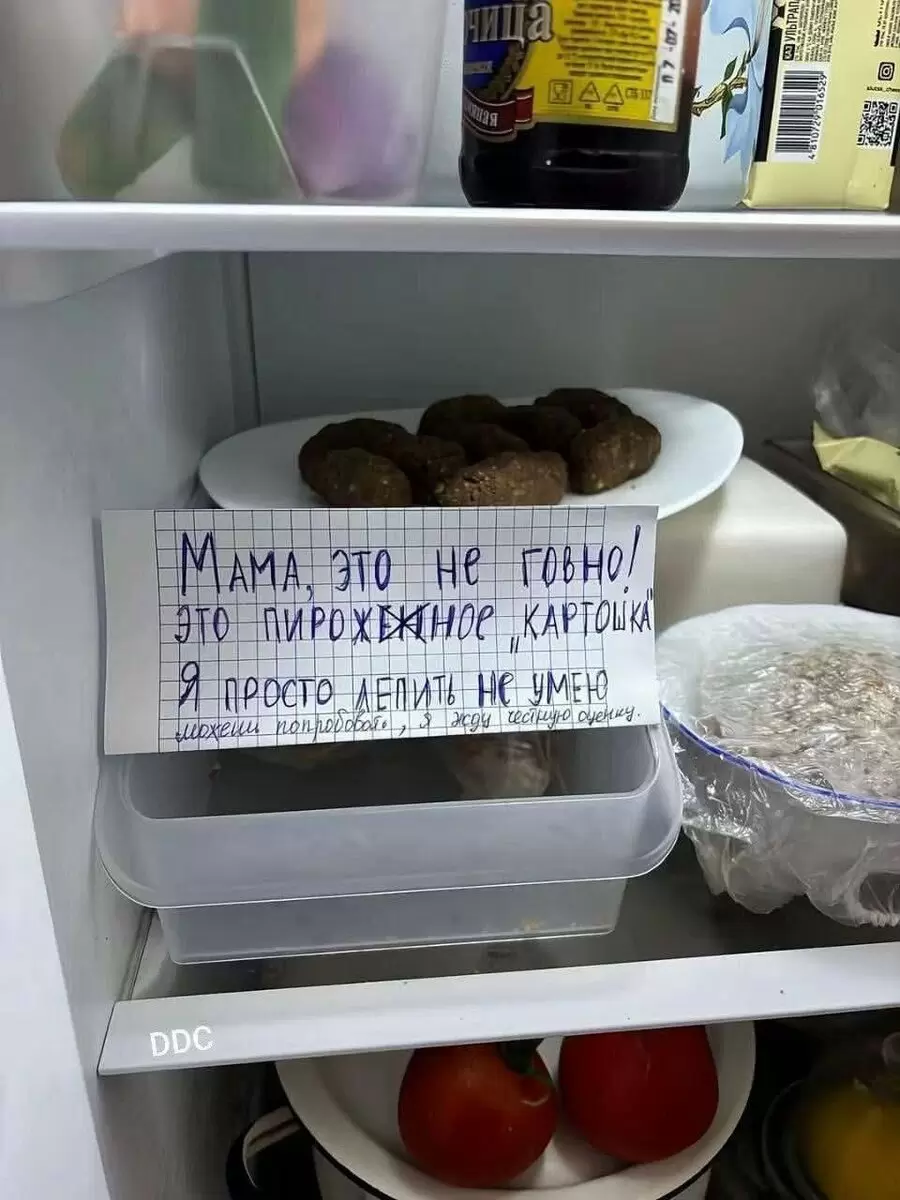 чица
07-
УЛЬТРАПА
4810729016525
МАМА, ЭТО НЕ ГОВНО!
ЭТО ПИРОЖЕНОЕ „КАРТОШКА"
Я ПРОСТО ЛЕПИТЬ НЕ УМЕЮ
можешь попробовать, я жду честную оценку.
DDC